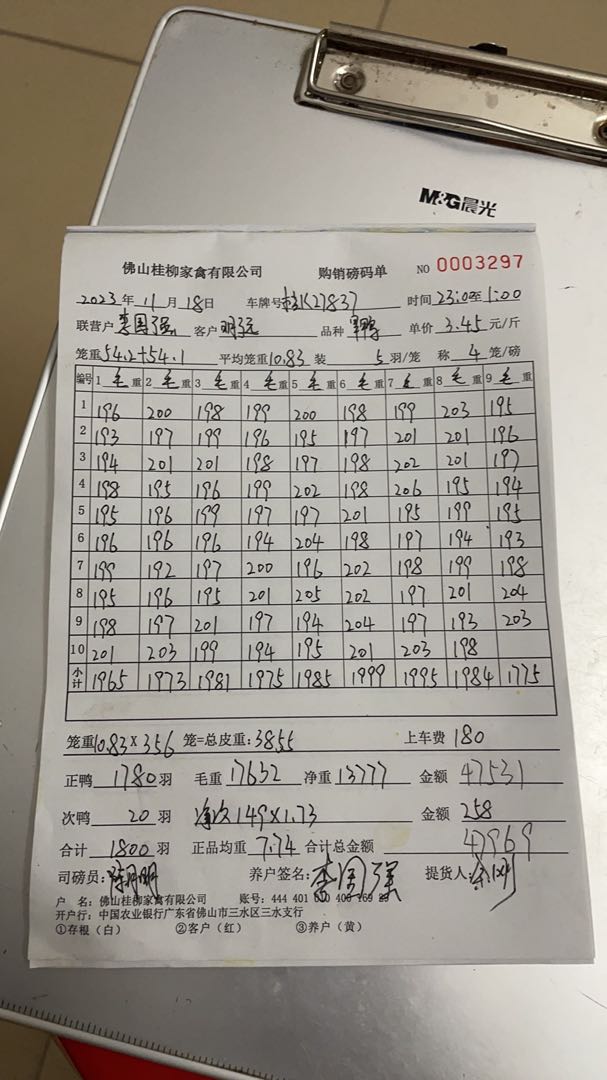 M&G晨光
佛山桂柳家禽有限公司 购销磅码单 NO 0003297
2023年11月18日 车牌号:桂K27837 时间23:0至1:00
联营户李国强 客户明 品种 鸭 单价 3.45 元/斤
笼重54.2+54.1 平均笼重10.83 装 5 羽/笼 称 4 笼/磅
编号 1 毛重 2 毛重 3 毛重 4 毛重 5 毛重 6 毛重 7 毛重 8 毛重 9 毛重
1 196 200 198 199 200 198 199 203 195
2 193 197 199 196 195 197 201 201 196
3 194 201 201 198 197 198 202 201 197
4 198 195 196 199 202 198 206 195 194
5 195 196 199 197 197 201 195 199 195
6 196 196 196 194 204 198 197 194 193
7 199 192 197 200 196 202 198 199 198
8 195 196 195 201 205 202 197 201 204
9 198 197 201 197 194 204 197 193 203
10 201 203 199 194 195 201 203 198
小计 1965 1973 1981 1975 1985 1999 1995 1984 1775
笼重10.83×356 笼=总皮重:3855 上车费 180
正鸭 1780羽 毛重 17632 净重 13777 金额 47531
次鸭 20 羽 净次149×1.73 金额 258
合计 1800 羽 正品均重 7.74 合计总金额 47969
司磅员:陈明 养户签名:李国强 提货人:
户 名:佛山桂柳家禽有限公司 账号:444 401 010 400 169 89
开户行:中国农业银行广东省佛山市三水区三水支行
①存根(白) ②客户(红) ③养户(黄)